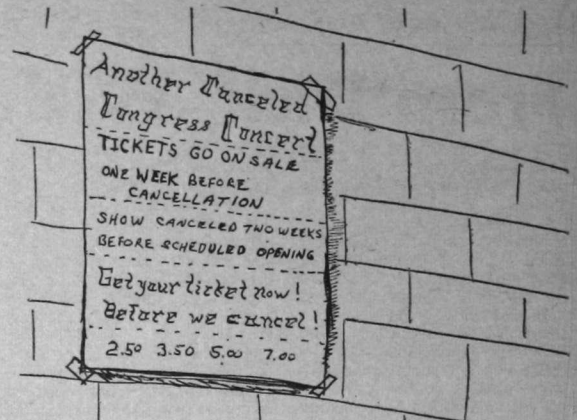 Another Canceled
Congress Concert
TICKETS GO ON SALE
ONE WEEK BEFORE
CANCELLATION
SHOW CANCELED TWO WEEKS
BEFORE SCHEDULED OPENING
Get your ticket now!
Before we cancel!
2.50 3.50 5.00 7.00